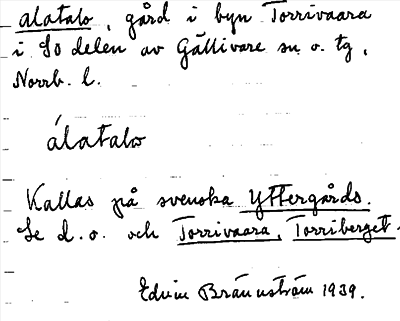 alatalo, gård i byn Torrivaara
i So delen av Gällivare sn o. tg,
Norrb. l.
álatalo
Kallas på svenska Yttergårds.
Se d. o. och Torrivaara, Torriberget.
Edvin Brännström 1939.